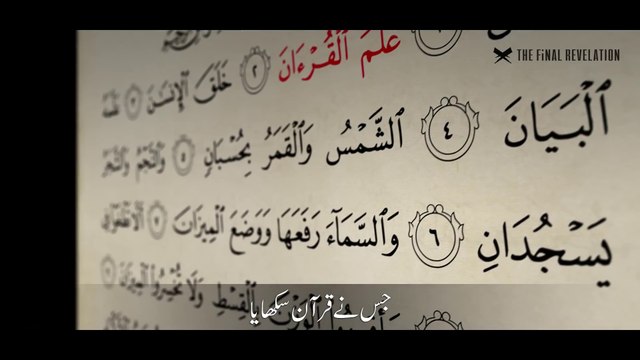 THE FiNAL REVELATION
عَلَّمَ ٱلْقُرْءَانَ ٢ خَلَقَ ٱلْإِنسَٰنَ ٣
ٱلْبَيَانَ ٤ ٱلشَّمْسُ وَٱلْقَمَرُ بِحُسْبَانٍ ٥ وَٱلنَّجْمُ وَٱلشَّجَرُ
يَسْجُدَانِ ٦ وَٱلسَّمَآءَ رَفَعَهَا وَوَضَعَ ٱلْمِيزَانَ ٧
ٱلْقِسْطِ وَلَا تُخْسِرُوا۟ ٱلْمِيزَانَ
جس نے قرآن سکھایا